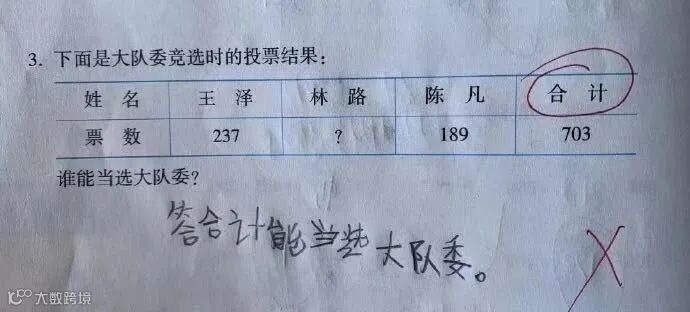 3. 下面是大队委竞选时的投票结果：
姓 名 王 泽 林 路 陈 凡 合 计
票 数 237 ? 189 703
谁能当选大队委？
答合计能当选大队委。
大数跨境